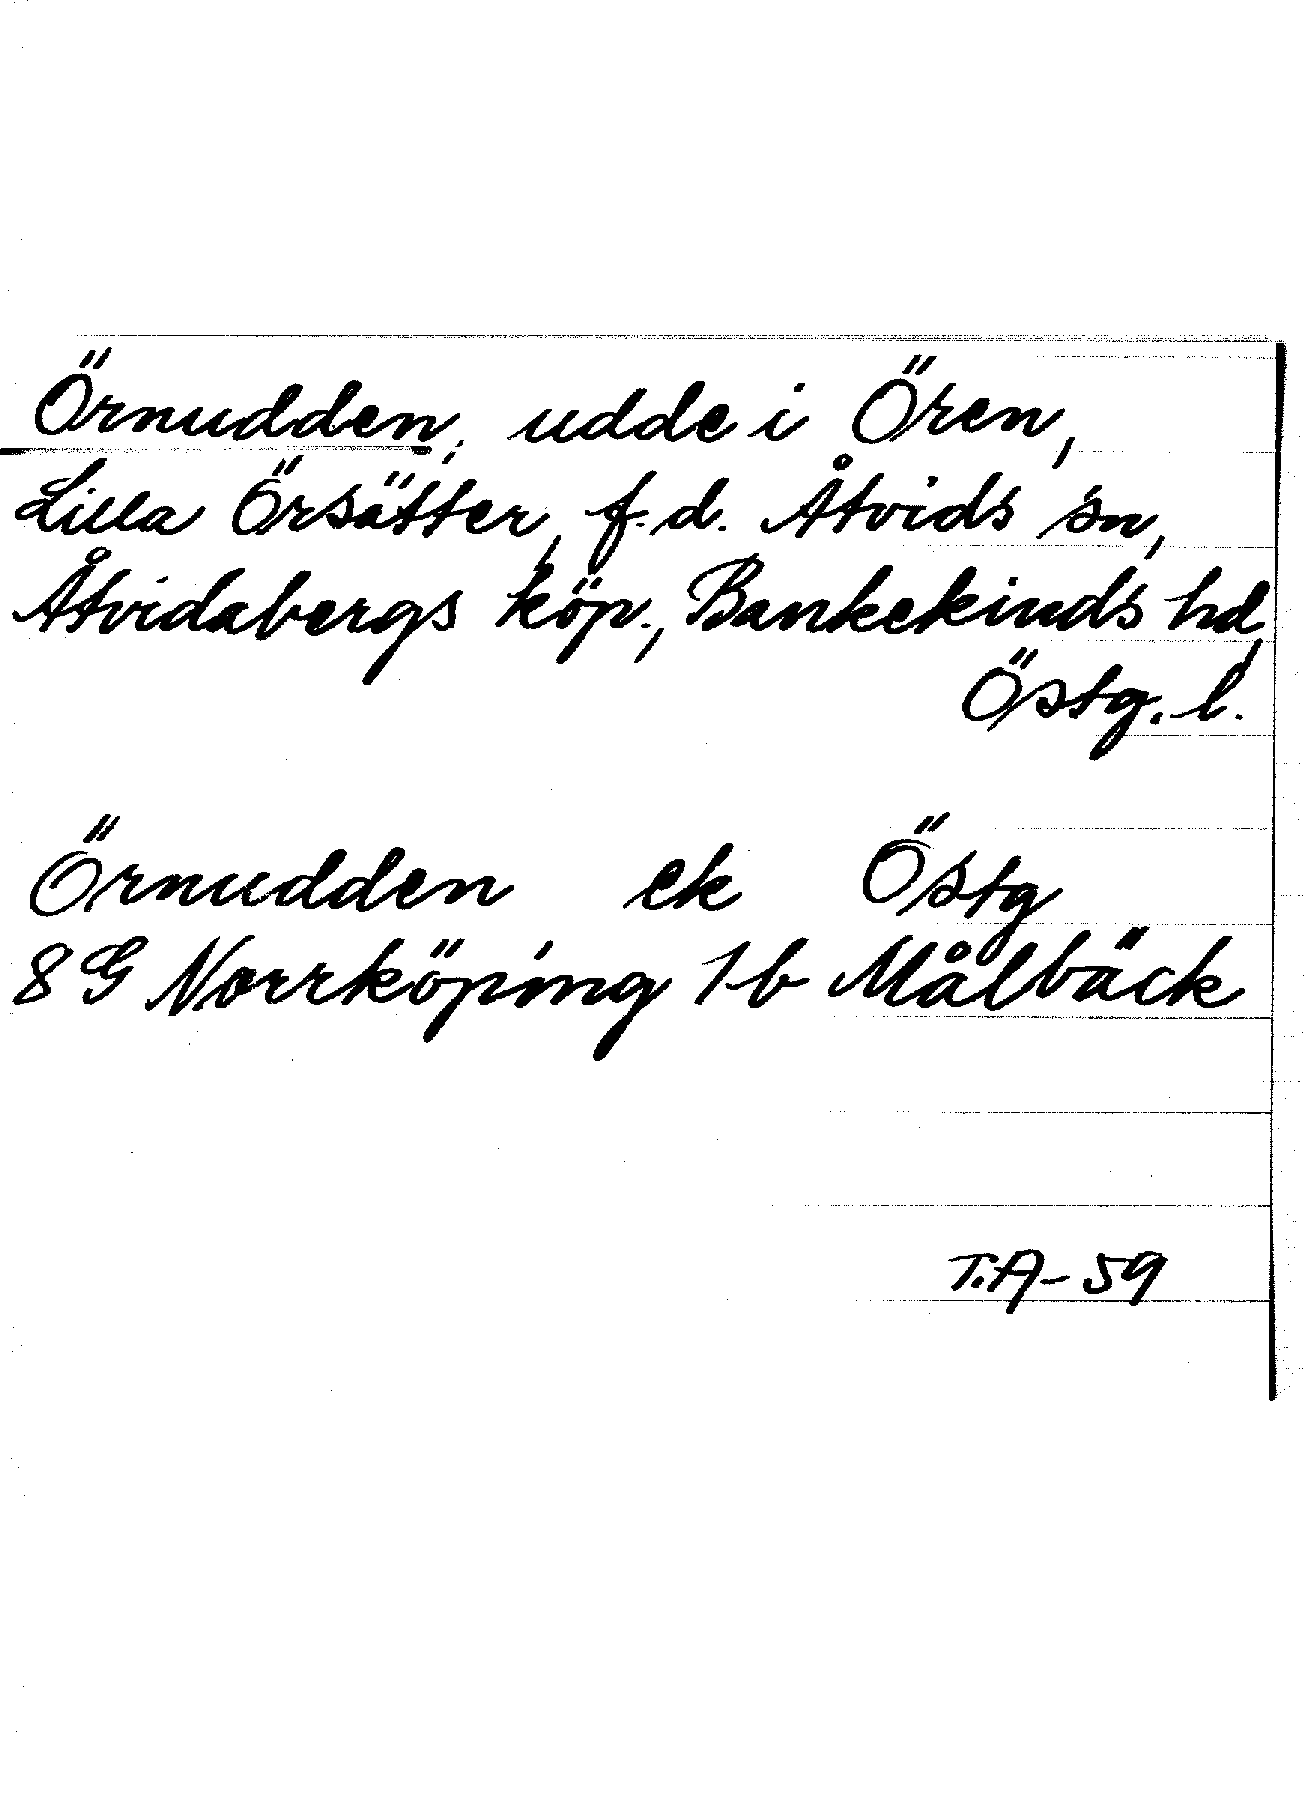 Örnudden, udde i Ören,
Lilla Örsätter, f.d. Åtvids sn,
Åtvidabergs köp., Bankekinds hd,
Östg. l.
Örnudden ek Östg
8G Norrköping 1b Målbäck
T.A-59